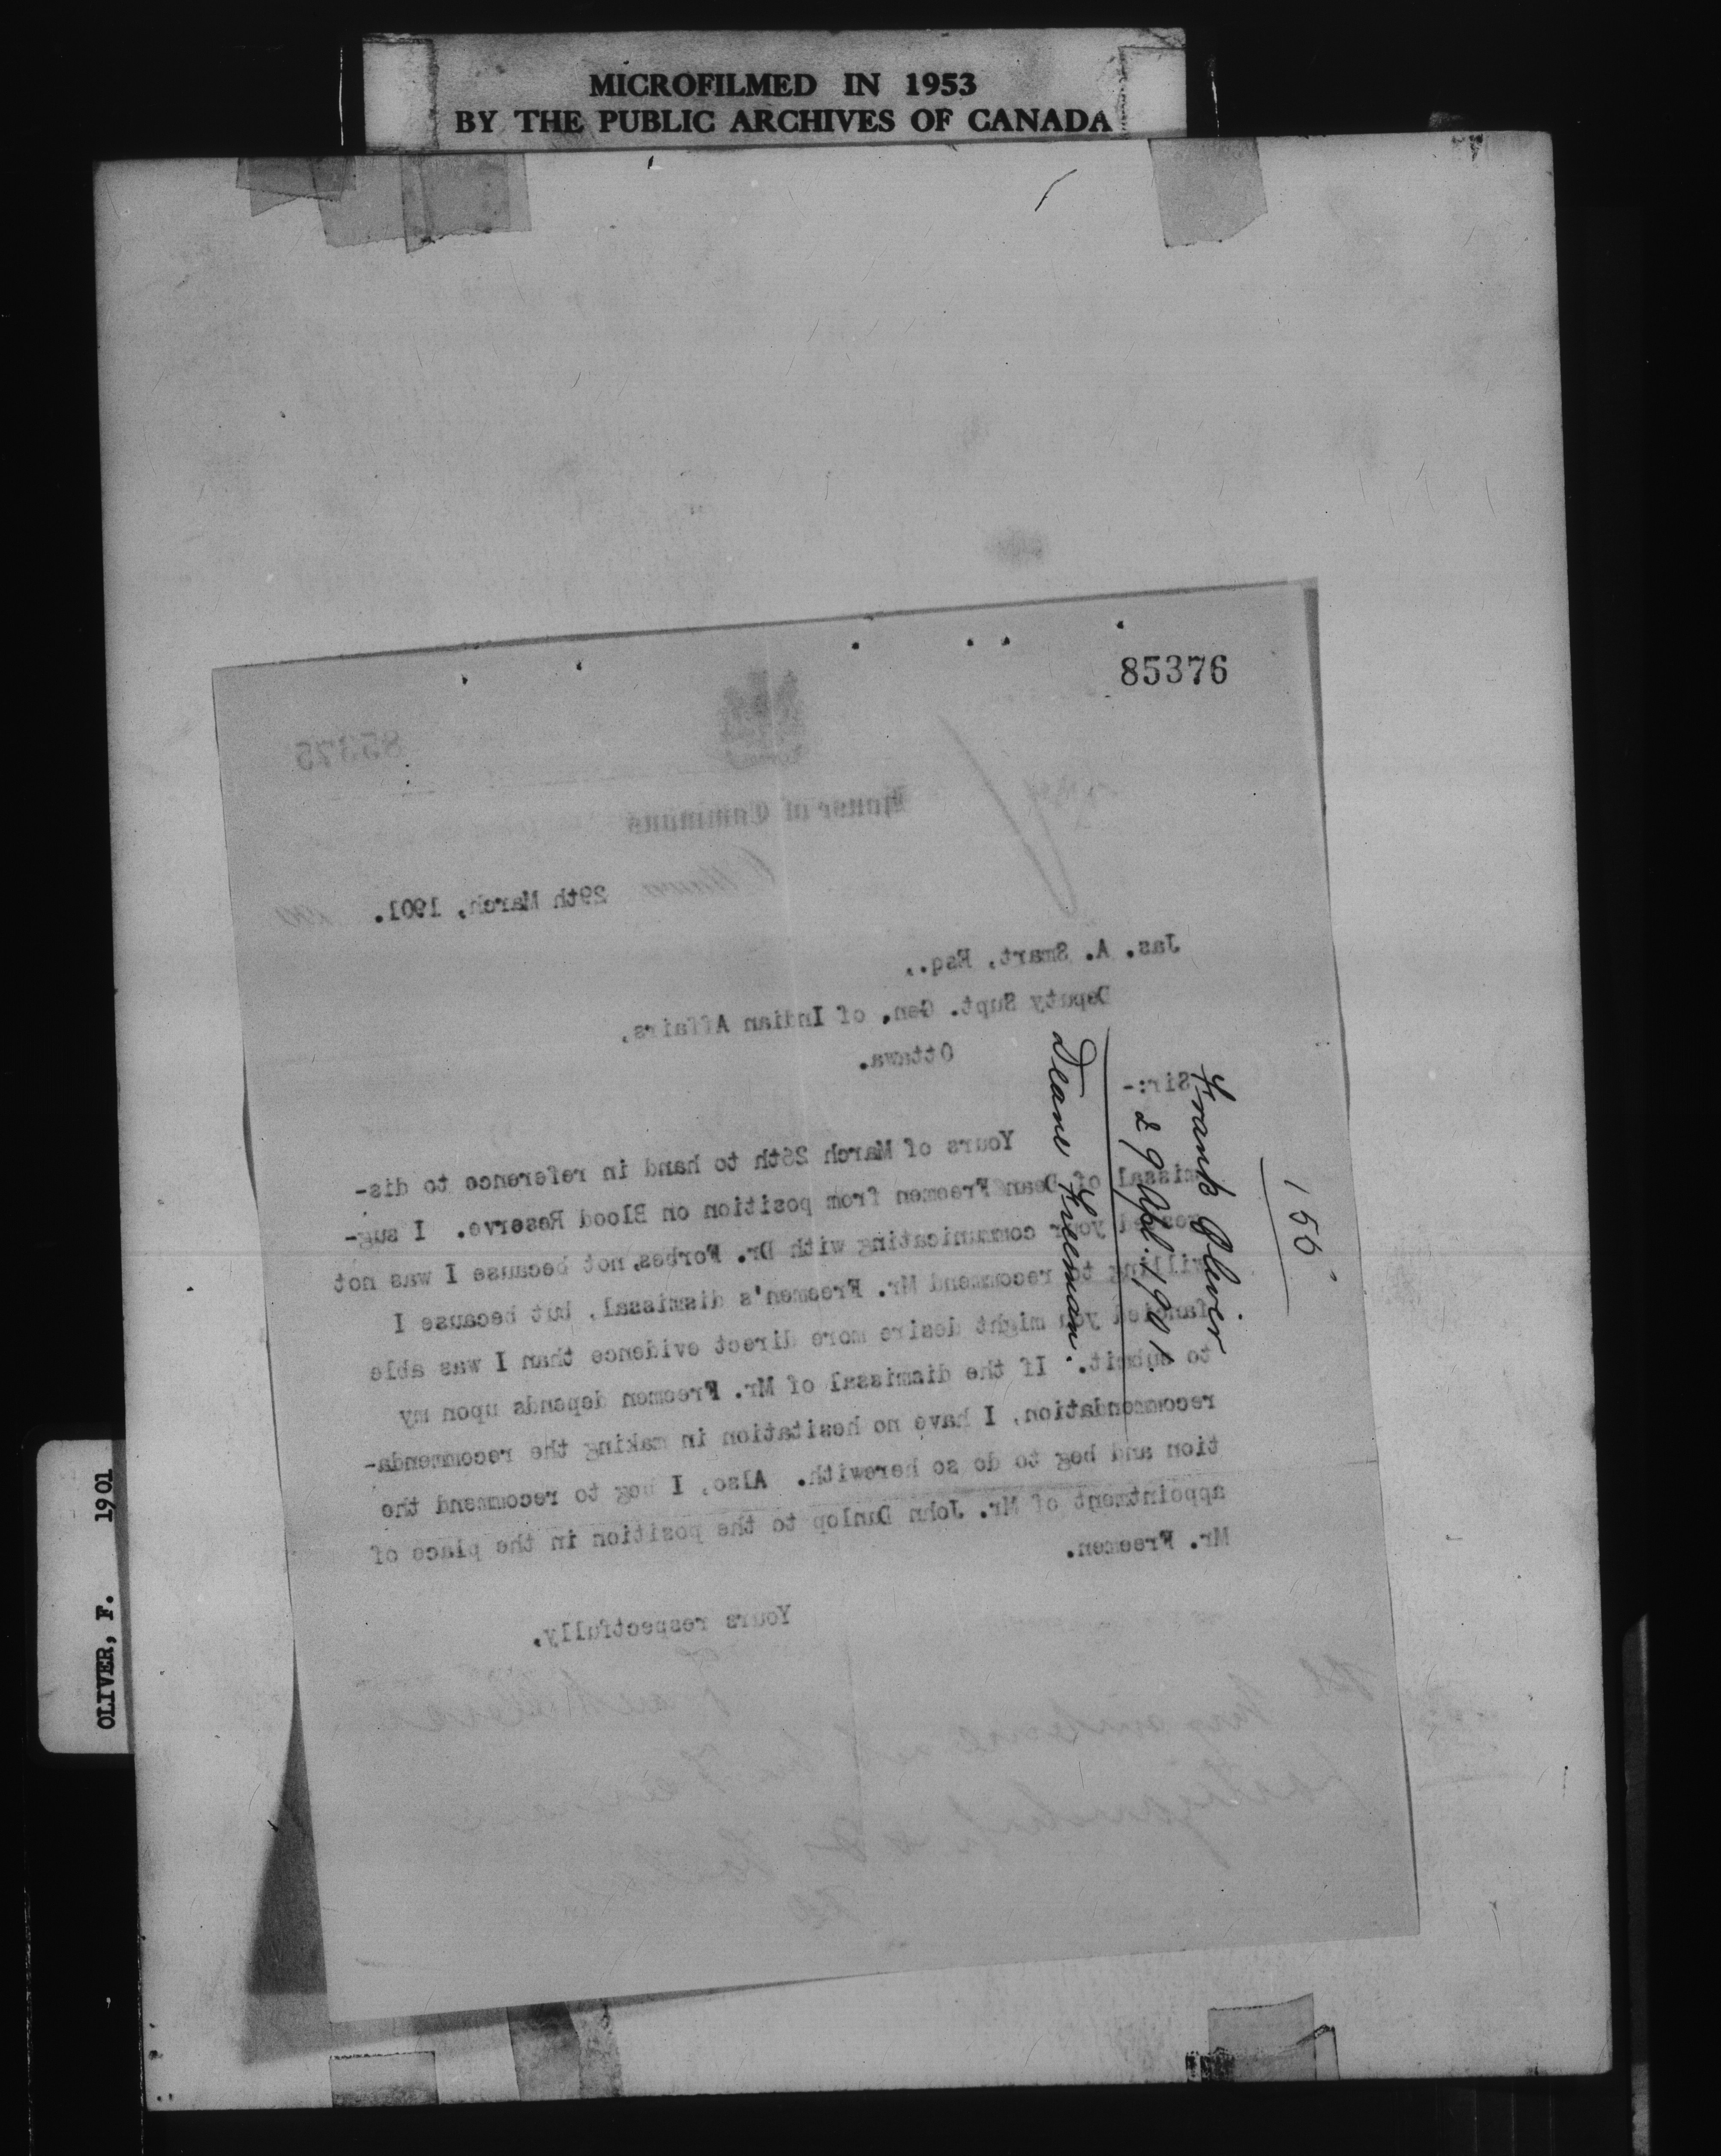 MICROFILMED IN 1953
BY THE PUBLIC ARCHIVES OF CANADA
85376
85375
House of Commons
29th March, 1901.
Jas. A. Smart, Esq.,
Deputy Supt. Gen. of Indian Affairs,
Ottawa.
Sir:-
Yours of March 26th to hand in reference to dis-
missal of Dean Freemen from position on Blood Reserve. I sug-
gested your communicating with Dr. Forbes, not because I was not
willing to recommend Mr. Freemen's dismissal, but because I
fancied you might desire more direct evidence than I was able
to submit. If the dismissal of Mr. Freemen depends upon my
recommendation, I have no hesitation in making the recommenda-
tion and beg to do so herewith. Also, I beg to recommend the
appointment of Mr. John Dunlop to the position in the place of
Mr. Freemen.
Yours respectfully,
Frank Oliver
156
Frank Oliver
29 Apl. 1901.
Deane Freeman.
OLIVER, F. 1901